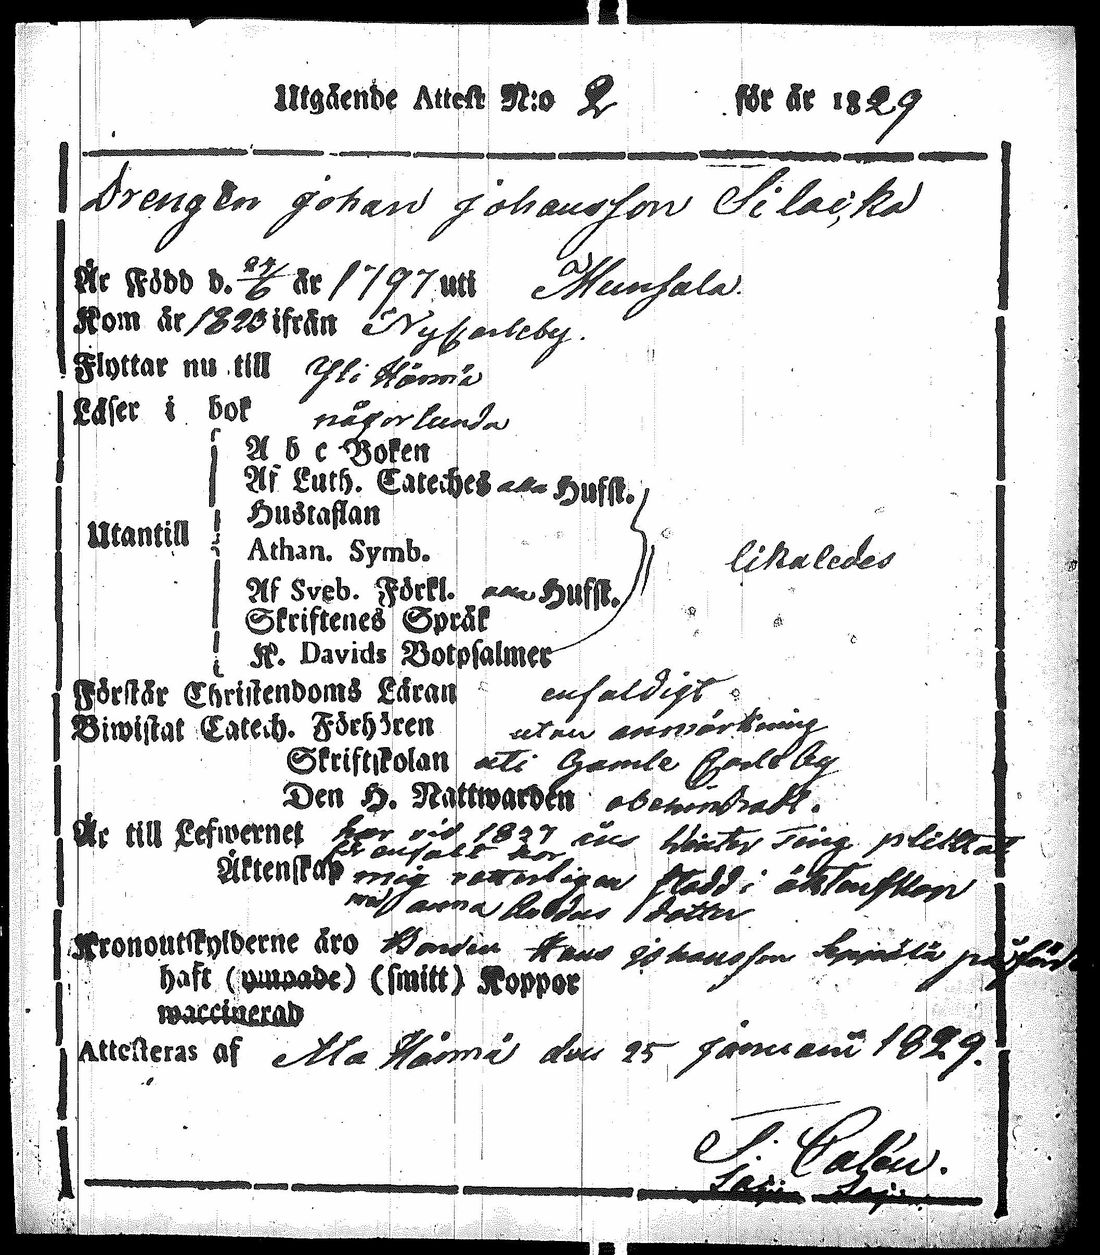 Utgående Attest N:o 2 för år 1829
Drengen Johan Johansson Silacka
Är Född d. 24/6 år 1797 uti Munsala.
Kom år 1823 ifrån Nycarleby.
Flyttar nu till Yli Härmä
Läser i bok någorlunda
A b c Boken
Af Luth. Cateches alla Hufst.
Hustaflan
Utantill
Athan. Symb.
likaledes
Af Sveb. Förkl. alla Hufst.
Skriftenes Språk
K. Davids Botpsalmer
Förstår Christendoms Läran enfaldigt
Biwistat Catech. Förhören utan anmärkning
Skriftskolan uti Gamle Carleby
Den H. Nattwarden obehindradt.
Är till Lefwernet har vid 1827 års Winter Ting pliktat
för enfalt hor
Äktenskap mig vetterligen stadd i äktenskap
med Anna Dotter
Kronoutskylderne äro Bonden Hans Johansson Seppälä påförde
haft (ympade) (smitt) Koppor
waccinerad
Attesteras af Ala Härmä den 25 Januarii 1829.
Calén.